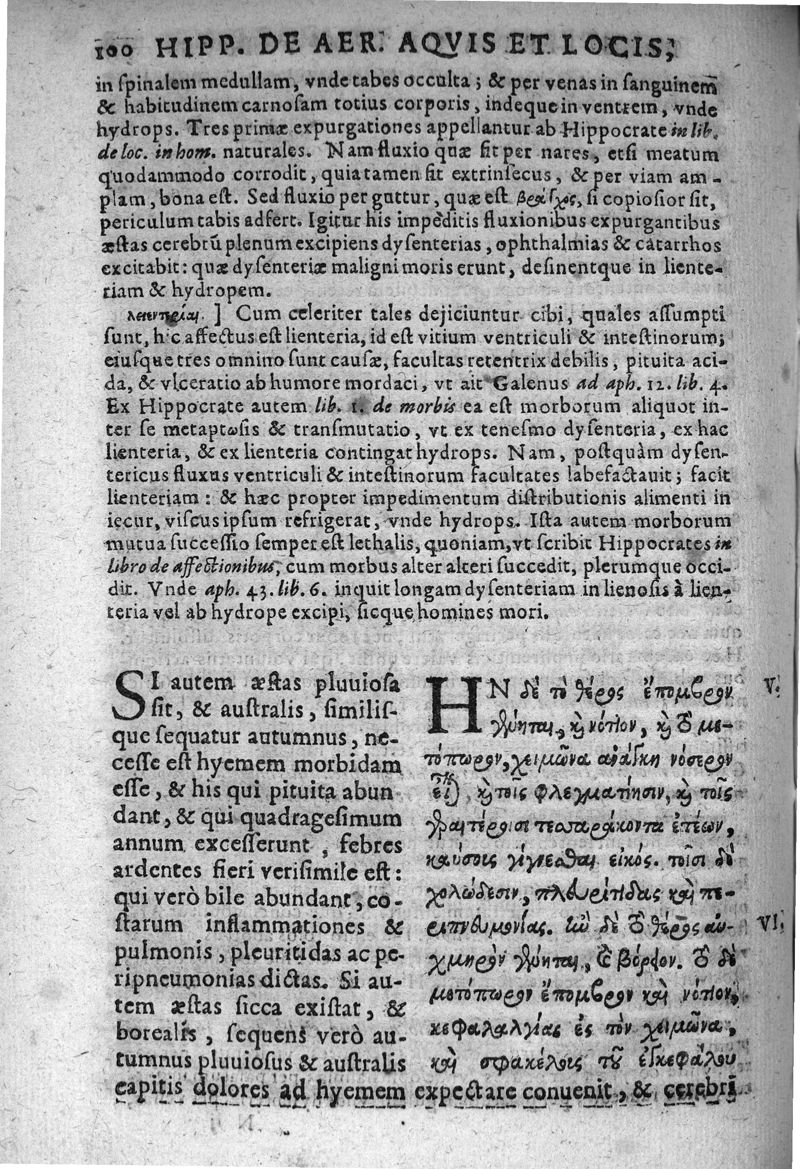 100 HIPP. DE AER. AQVIS ET LOCIS,
in spinalem medullam, vnde tabes occulta; & per venas in sanguinem
& habitudinem carnosam totius corporis, indeque in ventrem, vnde
hydrops. Tres primæ expurgationes appellantur ab Hippocrate in lib.
de loc. in hom. naturales. Nam fluxio quæ fit per nares, etsi meatum
quodammodo corrodit, quia tamen fit extrinsecus, & per viam am-
plam, bona est. Sed fluxio per guttur, quæ est βράγχος, si copiosior sit,
periculum tabis adfert. Igitur his impeditis fluxionibus expurgantibus
æstas cerebrū plenum excipiens dysenterias, ophthalmias & catarrhos
excitabit: quæ dysenteriæ maligni moris erunt, desinentque in liente-
riam & hydropem.
λειεντερίαι. ] Cum celeriter tales dejiciuntur cibi, quales assumpti
sunt, hic affectus est lienteria, id est vitium ventriculi & intestinorum;
eiusque tres omnino sunt causæ, facultas retentrix debilis, pituita aci-
da, & vlceratio ab humore mordaci, vt ait Galenus ad aph. 12. lib. 4.
Ex Hippocrate autem lib. 1. de morbis ea est morborum aliquot in-
ter se metaptωsis & transmutatio, vt ex tenesmo dysenteria, ex hac
lienteria, & ex lienteria contingat hydrops. Nam, postquàm dysen-
tericus fluxus ventriculi & intestinorum facultates labefactauit; facit
lienteriam: & hæc propter impedimentum distributionis alimenti in
iecur, viscus ipsum refrigerat, vnde hydrops. Ista autem morborum
mutua successio semper est lethalis, quoniam, vt scribit Hippocrates in
libro de affectionibus, cum morbus alter alteri succedit, plerumque occi-
dit. Vnde aph. 43. lib. 6. inquit longam dysenteriam in lienosis à lien-
teria vel ab hydrope excipi, sicque homines mori.
SI autem æstas pluuiosa
sit, & australis, similis-
que sequatur autumnus, ne-
cesse est hyemem morbidam
esse, & his qui pituita abun
dant, & qui quadragesimum
annum excesserunt, febres
ardentes fieri verisimile est:
qui verò bile abundant, co-
starum inflammationes &
pulmonis, pleuritidas ac pe-
ripneumonias dictas. Si au-
tem æstas sicca existat, &
borealis, sequens verò au-
tumnus pluuiosus & australis
capitis dolores ad hyemem expectare conuenit, & cerebri
ΗΝ δὲ τὸ θέρος ἔπομβρον V.
γένηται, καὶ νότιον, καὶ τὸ με-
τόπωρον, χειμῶνα ἀνάγκη νοσερὸν
εἶναι καὶ τοῖς φλεγματίησιν, καὶ τοῖς
γεραιτέροισι τεσσαράκοντα ἐτέων,
καύσοις γίγνεσθαι εἰκός. τοῖσι δὲ
χολώδεσιν, πλευρίτιδας καὶ πε-
ριπνευμονίας. ἢν δὲ τὸ θέρος αὐ- VI.
χμηρὸν γένηται, καὶ βόρειον. τὸ δὲ
μετόπωρον ἔπομβρον καὶ νότιον,
κεφαλαλγίας ἐς τὸν χειμῶνα,
καὶ σφακέλοις τοῦ ἐγκεφάλου